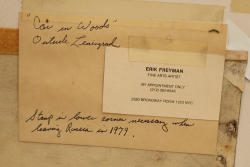 "Car in Woods"
Outside Leningrad
ERIK FREYMAN
FINE ARTS ARTIST
BY APPOINTMENT ONLY
2350 BROADWAY NY
Stamp in lower corner necessary when
leaving Russia in 1979.